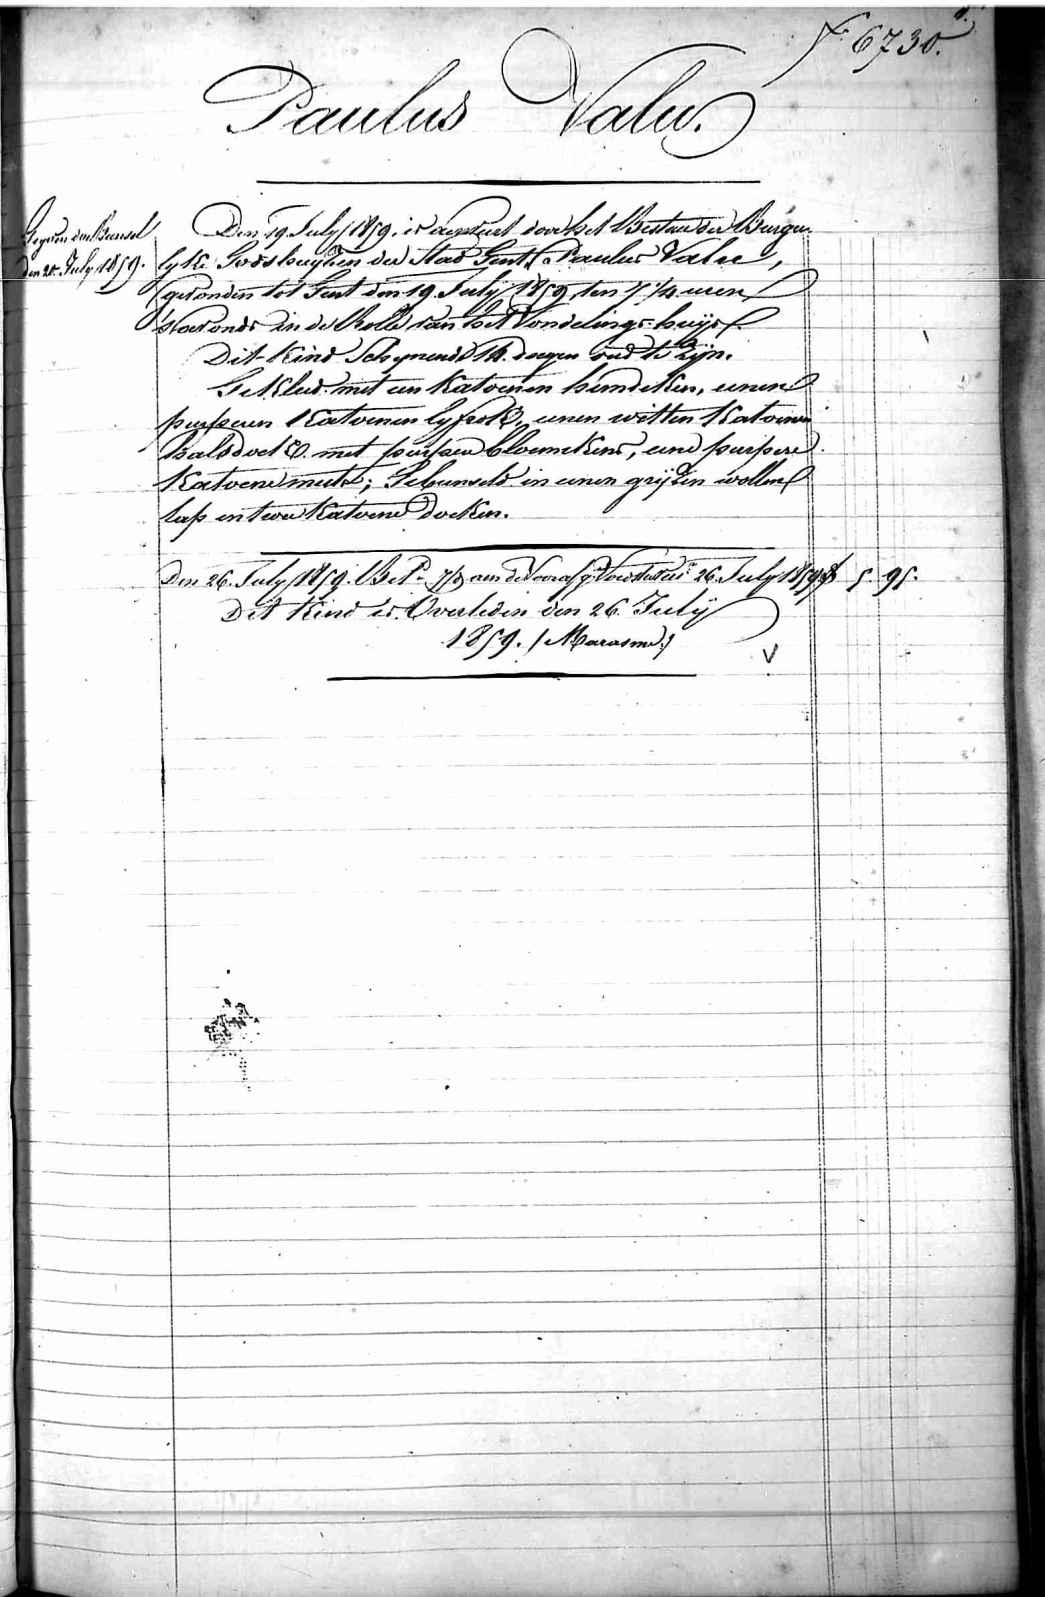 F.o 6730.
Paulus Valu.
Gegeven den Bunsel
den 20 July 1859.
Den 19 July 1859, is aenveert door het Bestier der Burger-
lyke Godshuyzen der Stad Gent, Paulus Valu,
gevonden tot Gent den 19 July 1859, ten 7 1/4 uren
's avonds in de Rolle van het Vondelings-huys.
Dit Kind Schynende 14 dagen oud te Zyn.
Gekleed met een Katoenen hemdeken, eenen
purperen Katoenen lyfrok, eenen witten Katoenen
halsdoek met purpere bloemekens, eene purpere
Katoene muts; Gebunseld in eenen gryzen wollen
lap en twee Katoene doeken.
Den 26 July 1859. aen de 26 July 1859 f 5 95.
Dit Kind is Overleden den 26 July
1859. (Marasme.)
V